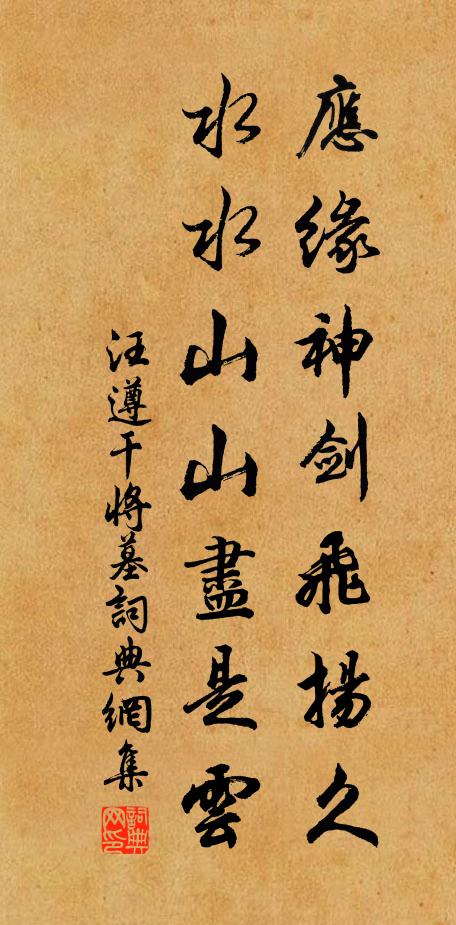 應緣神劍飛揚久
水水山山盡是雲
汪遵干將墓詞典網集
詞典网印